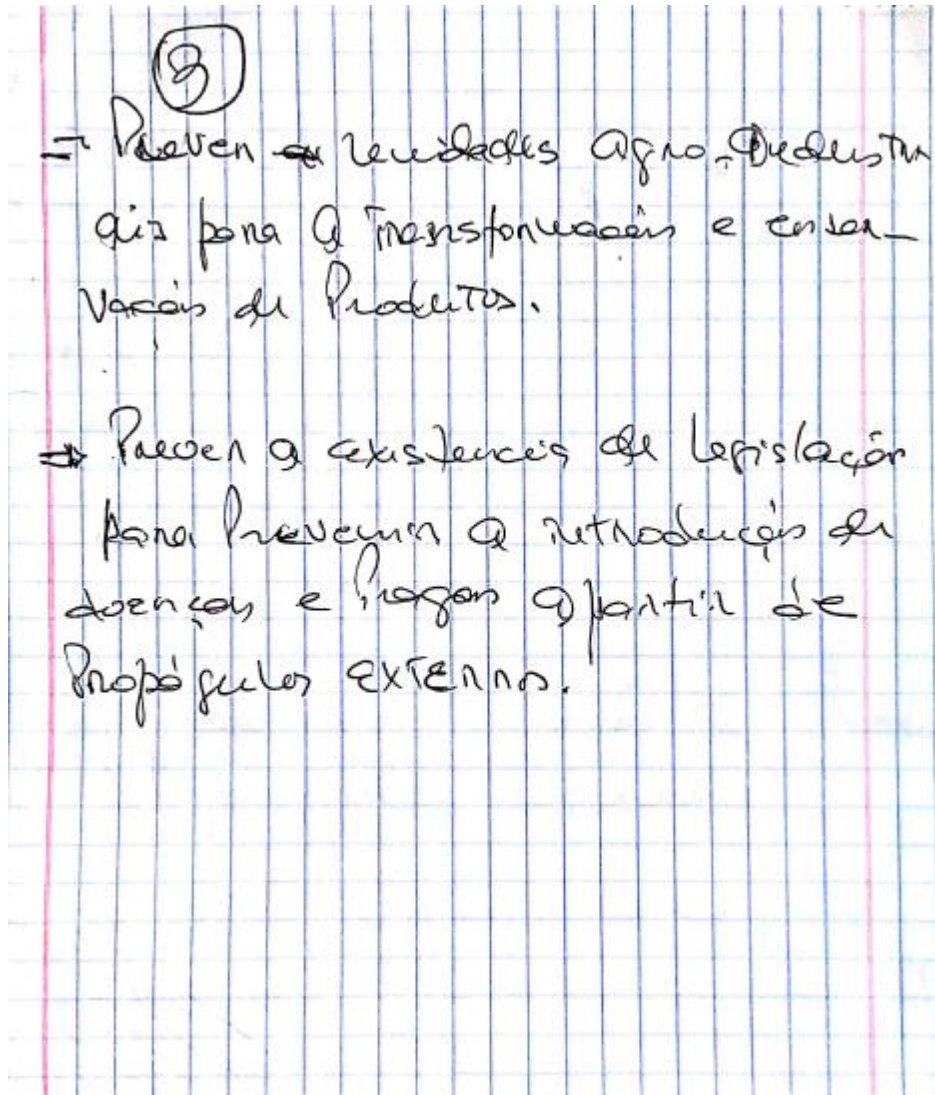 3
- Prever unidades agro-Industri
ais para a Transformação e conser-
vação de Produtos.
⇒ Prever a existência de legislação
para Prevenir a introdução de
doenças e Pragas apartir de
Propágulos EXTERNOS.